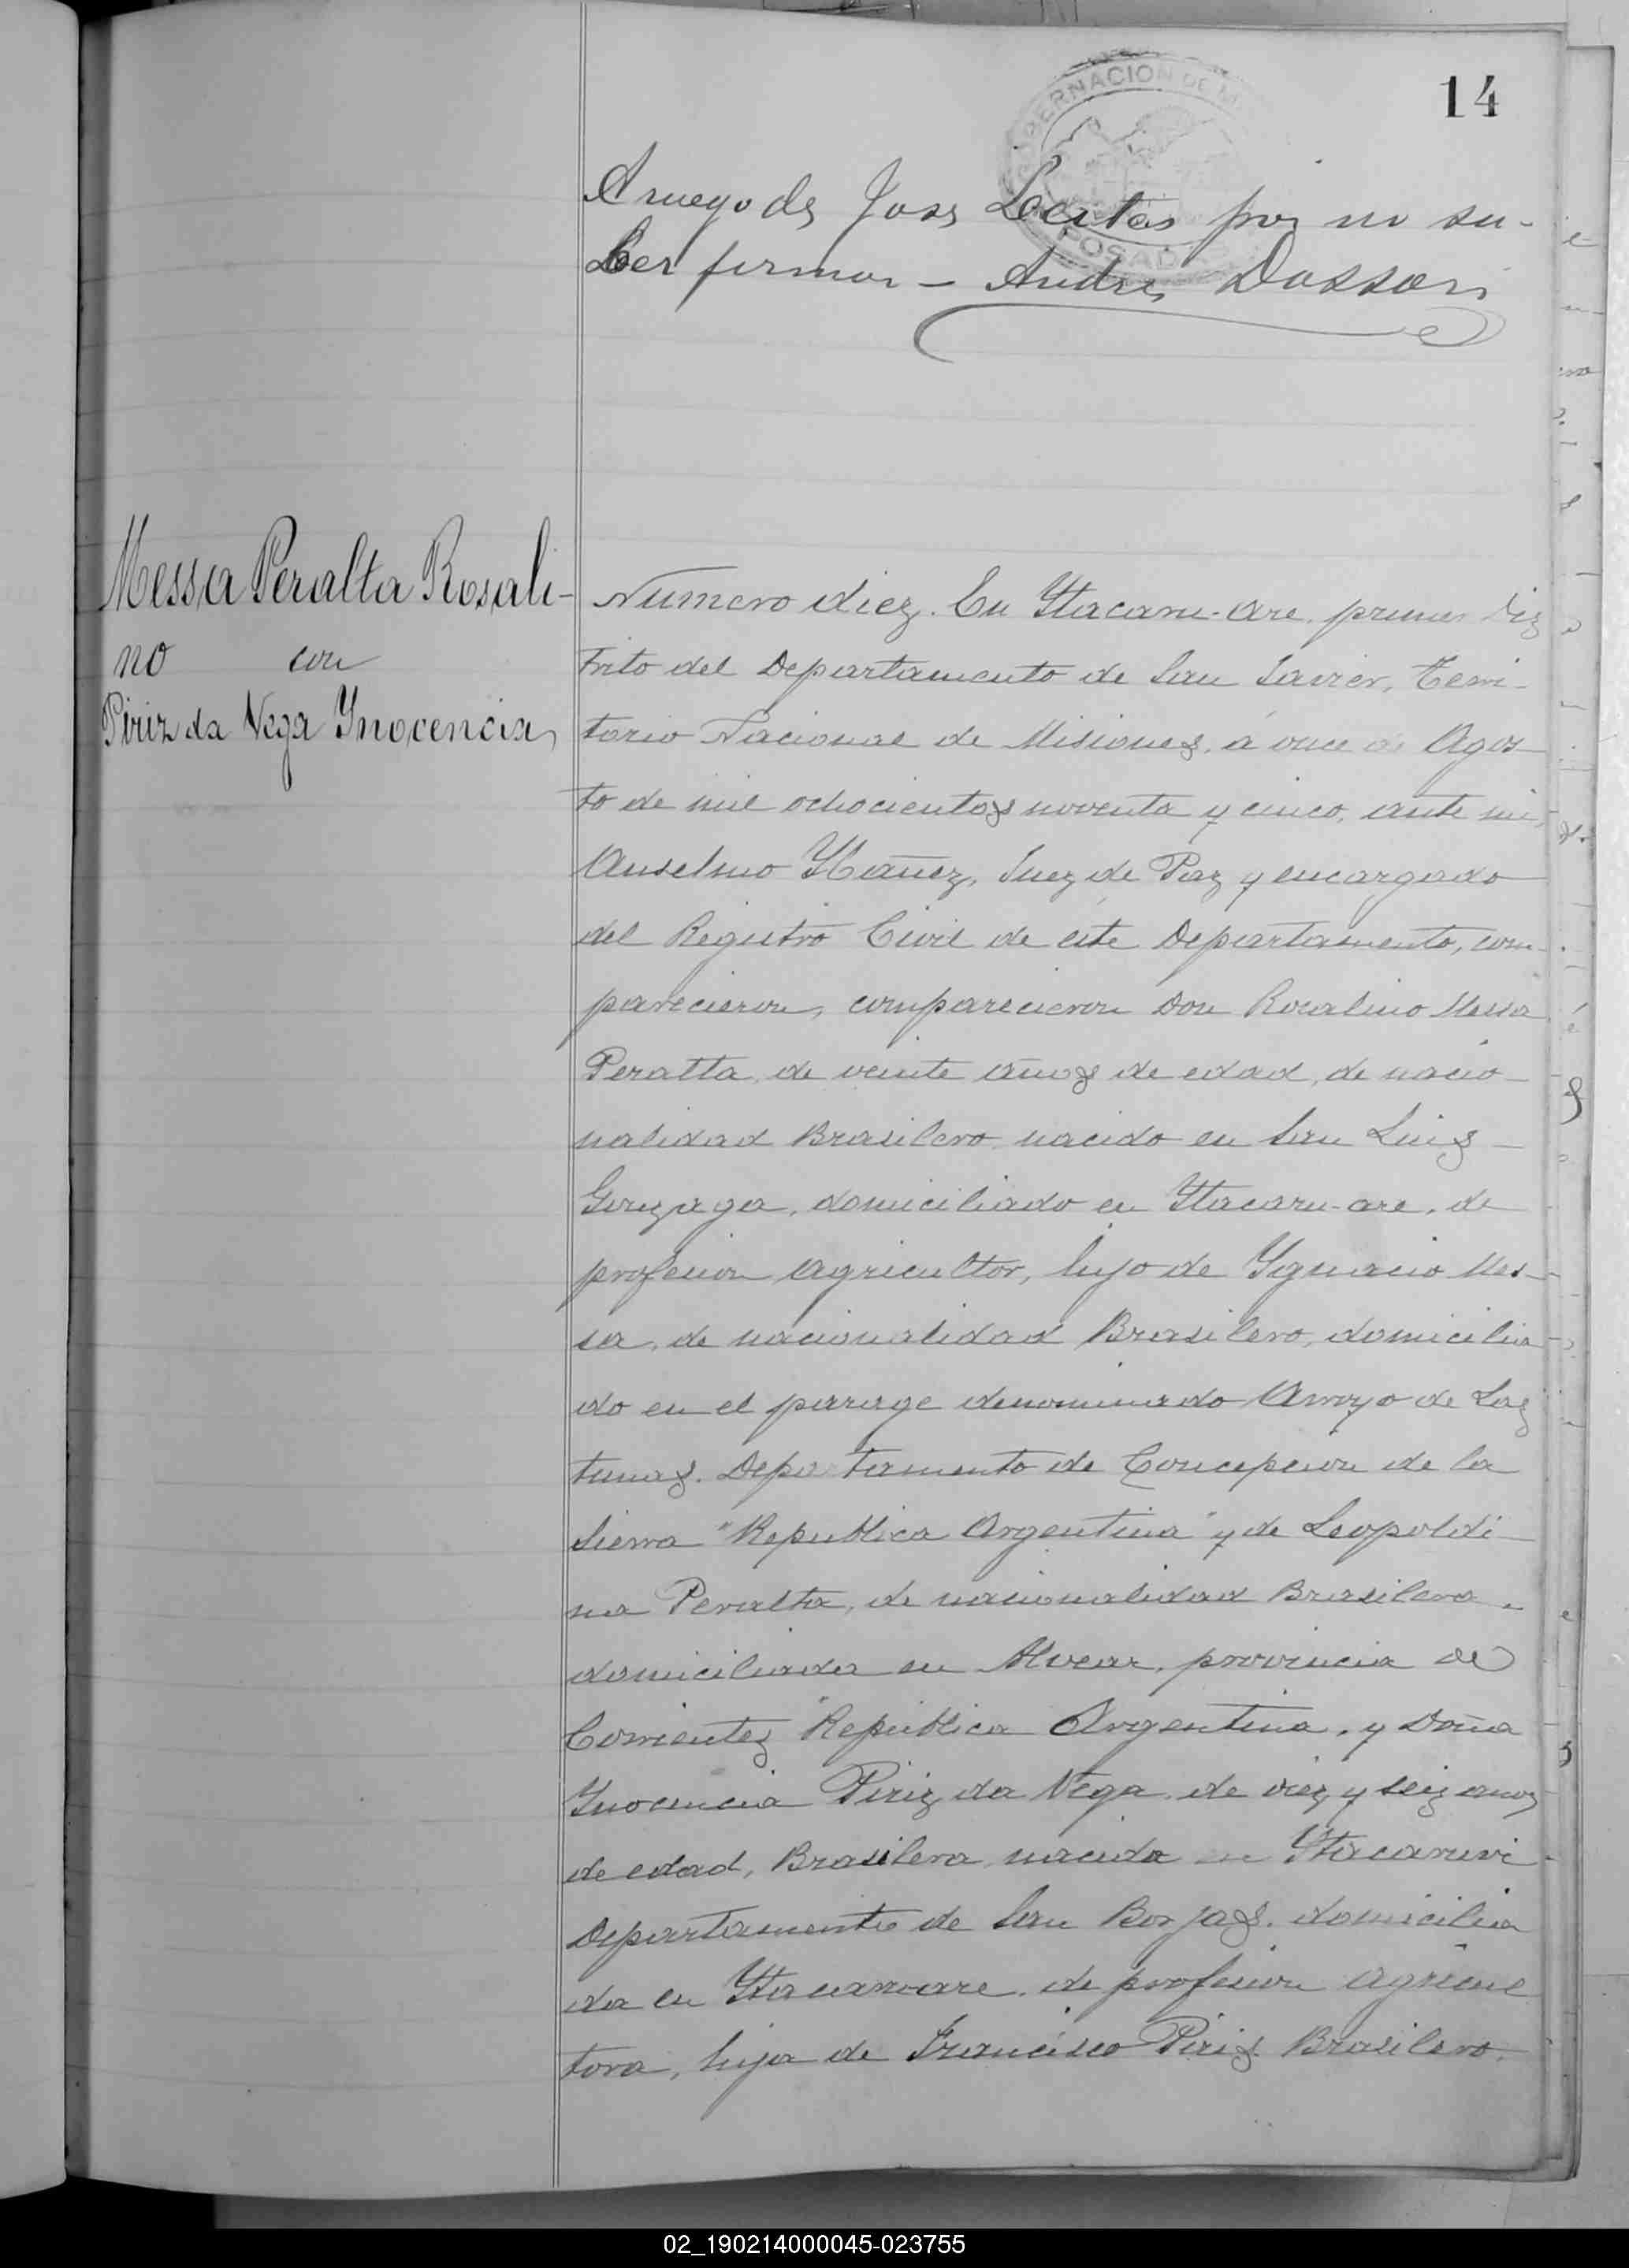 14
GOBERNACION DE M
POSADAS
A ruego de Jose por no sa-
ber firmar – Andres
Messa Peralta Rosali-
no con
Piriz da Vega Ynocencia
Numero diez. En Ytacaru-are, primer Diz
trito del Departamento de San Javier, Terri-
torio Nacional de Misiones, á once de Agos-
to de mil ochocientos noventa y cinco, ante mi,
Anselmo Ybañez, Juez de Paz y encargado
del Registro Civil de éste Departamento, com-
parecieron, comparecieron Don Rosalino Messa
Peralta, de veinte años de edad, de nacio-
nalidad Brasilero, nacido en San Luis
Gonzaga, domiciliado en Ytacaru-are, de
profesion agricultor, hijo de Ygnacio Mes-
sa, de nacionalidad Brasilero, domicilia
do en el parage denominado Arroyo de Las
tunas. Departamento de Concepcion de la
Sierra "Republica Argentina" y de Leopoldi-
na Peralta, de nacionalidad Brasilera,
domiciliada en Alvear, provincia de
Corrientes "Republica Argentina, y Doña
Ynocencia Piriz da Vega, de diez y seis anos
de edad, Brasilera, nacida en Ytacaruvi
Departamento de San Borjas, domicilia
da en Ytacaruare, de profesion agricul
tora, hija de Francisco Piris Brasilero,
02_190214000045-023755